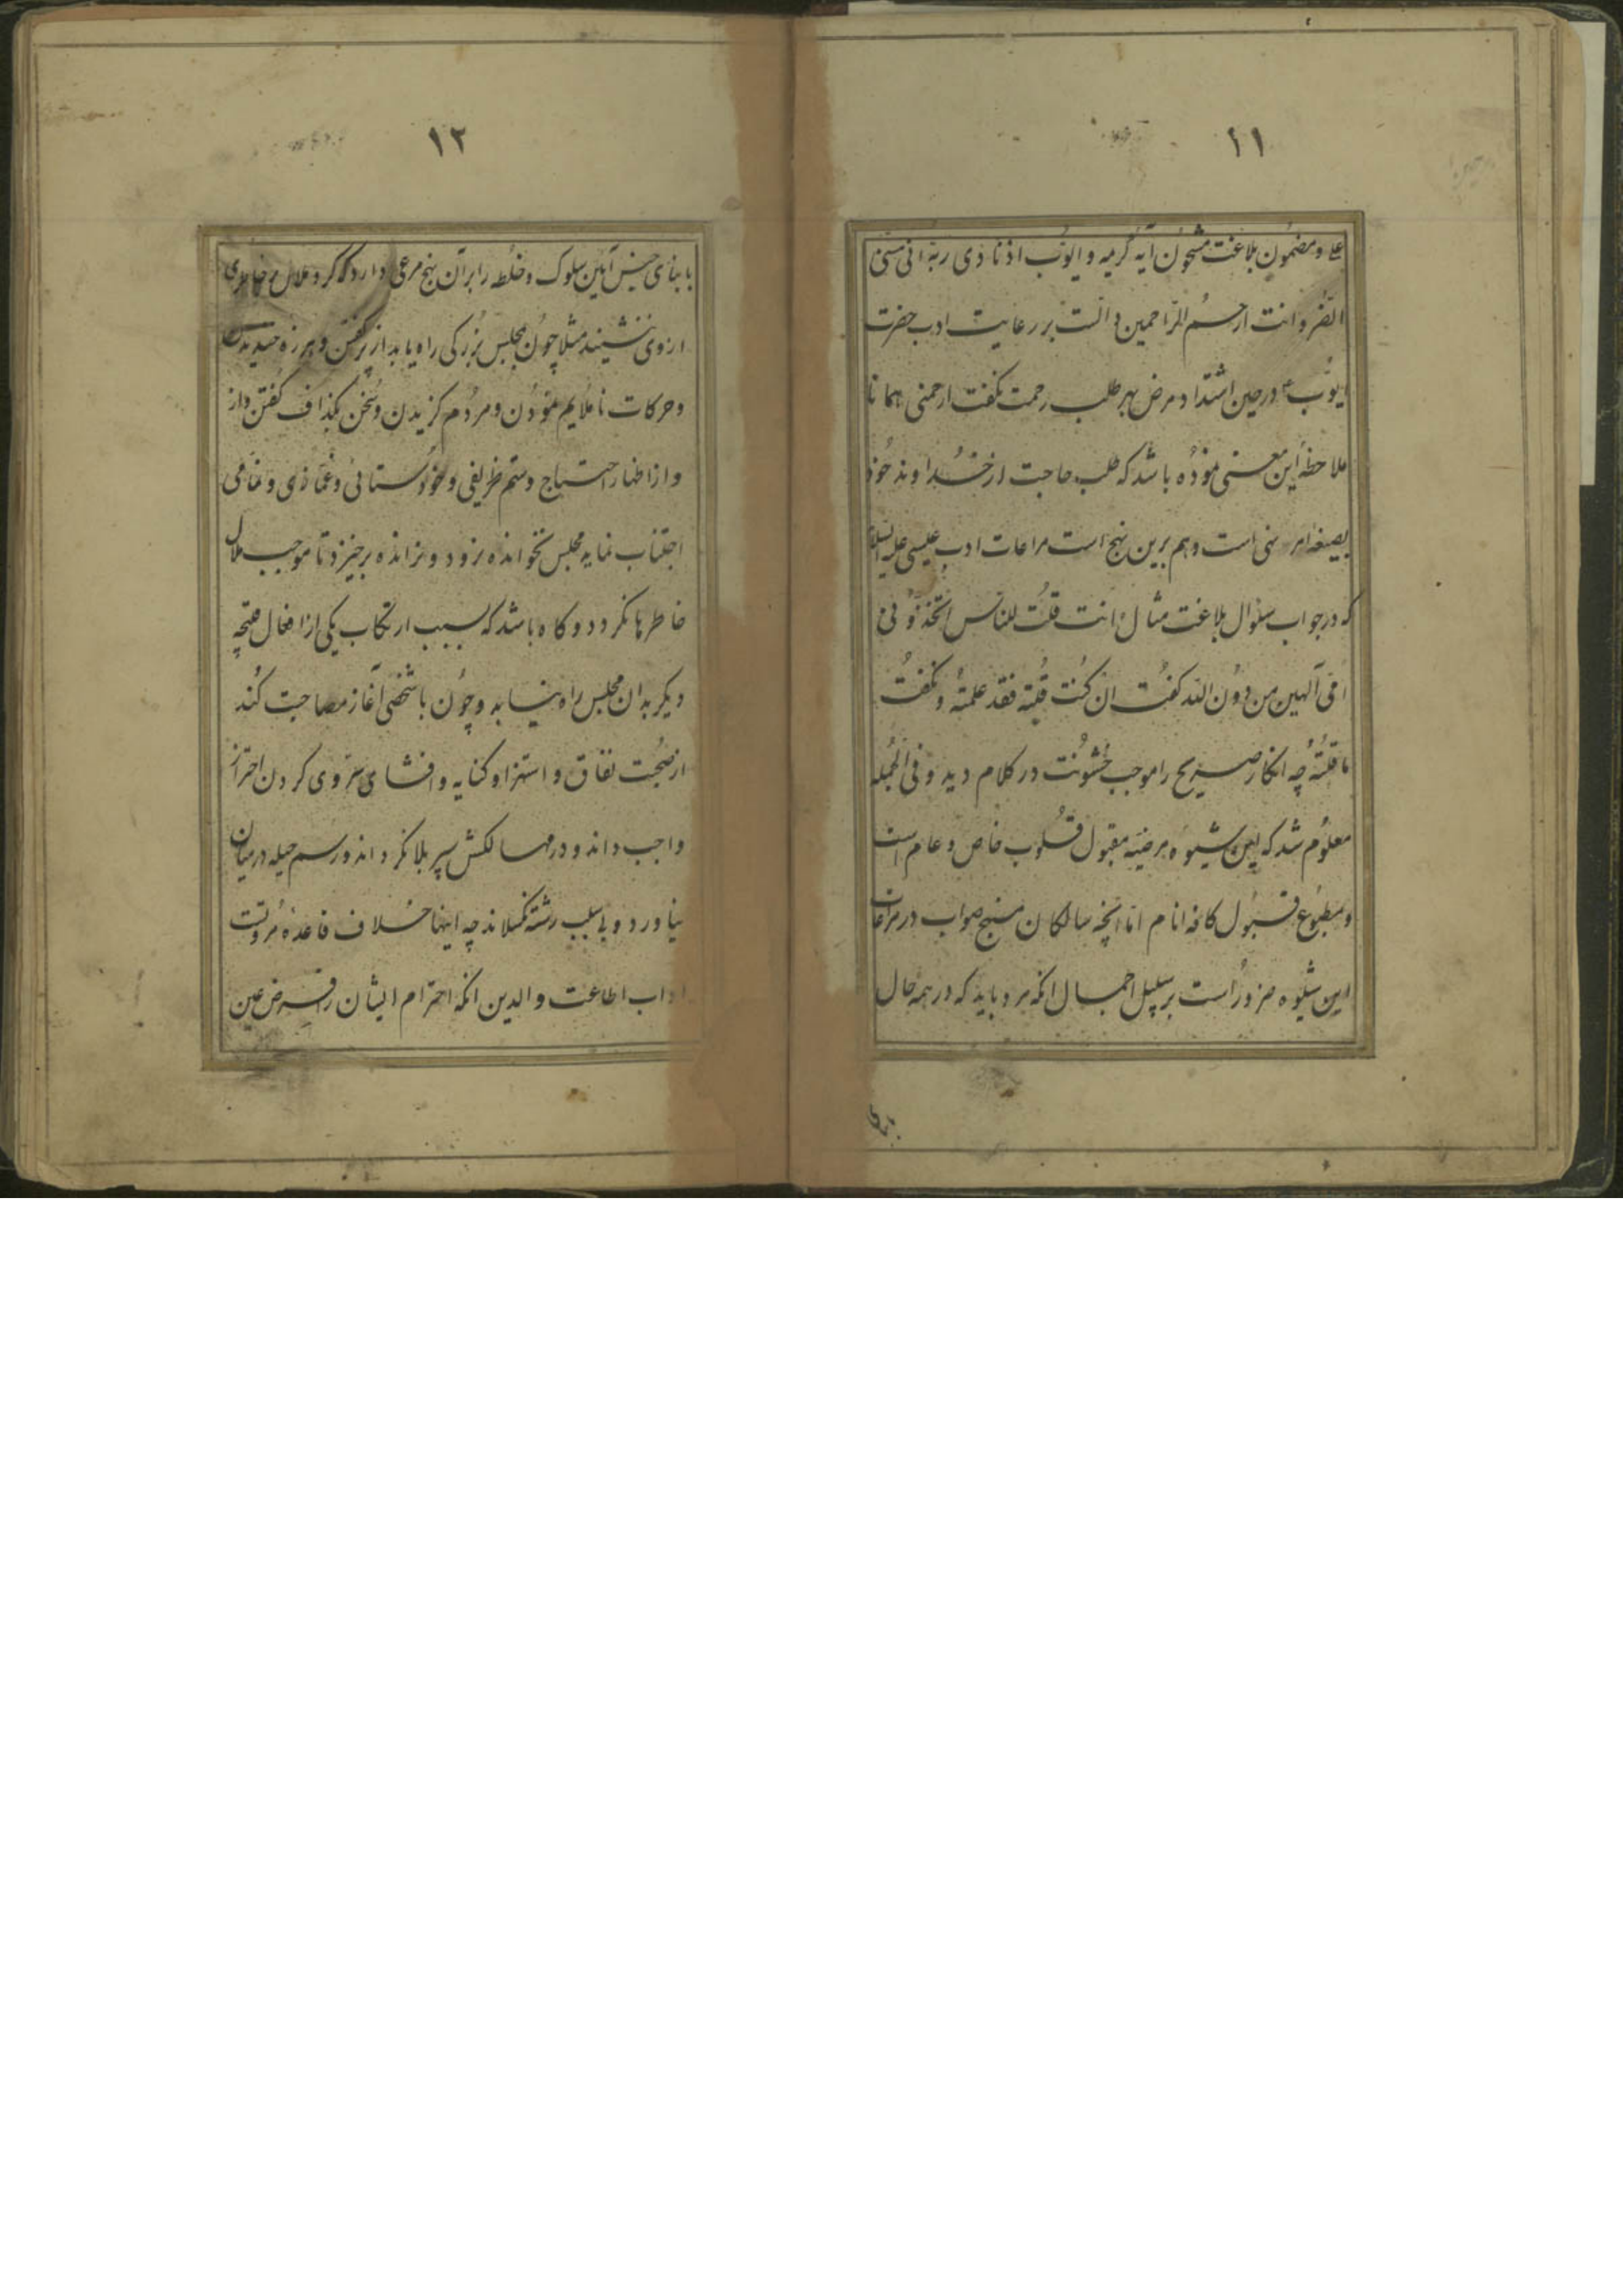 ١١
و مضمون بلاغت مشحون آیه کریمه و ایوب اذ نادی ربه انی مسنی
الضر و انت ارحم الراحمین دالست بر رعایت ادب حضرت
ایوب ع در حین اشتداد مرض بهر طلب رحمت نکفت ارحمنی همانا
ملاحظه این معنی نموده باشد که طلب حاجت از خداوند خود
بصیغه امر است و هم برین نهج است مراعات ادب عیسی علیه السلام
که در جواب سئوال بلاغت مثال ءانت قلت للناس اتخذونی
امی آلهین من دون الله کفت ان کنت قلته فقد علمته و نکفت
ما قلته چه انکار صریح را موجب خشونت در کلام دید و فی الجمله
معلوم شد که این شیوه مرضیه مقبول قلوب خاص و عام است
و مطبوع قبول کافه انام اما آنچه سالکان منهج صواب در مراعات
این شیوه ضرور است بر سبیل اجمال آنکه مرد باید که در همه حال
١٢
با ابنای جنس آیین سلوک و خلطه را بر آن نهج مرعی دارد که کرد ملال بر خاطری
ازوی ننشیند مثلا چون بمجلس بزرکی راه یابد از پر کفتن و هرزه خندیدن
و حرکات ناملایم نمودن و مردم کزیدن و سخن بکذاف کفتن
و از اظهار احتیاج و ستم ظریفی و خودستائی و غمازی و نمامی
اجتناب نماید بمجلس نخوانده نرود و نرانده برخیزد تا موجب ملال
خاطرها نکردد و کاه باشد که بسبب ارتکاب یکی از افعال قبیحه
دیکر بدان مجلس راه نیابد و چون با شخصی آغاز مصاحبت کند
از صحبت نفاق و استهزا و کنایه و افشای سر وی کردن احتراز
واجب داند و در مهالکش سپر بلا کرداند و رسم حیله در میان
نیاورد و بی سبب رشته نکسلاند چه اینها خلاف قاعده مروتست
اداب اطاعت والدین آنکه احترام ایشان را فرض عین